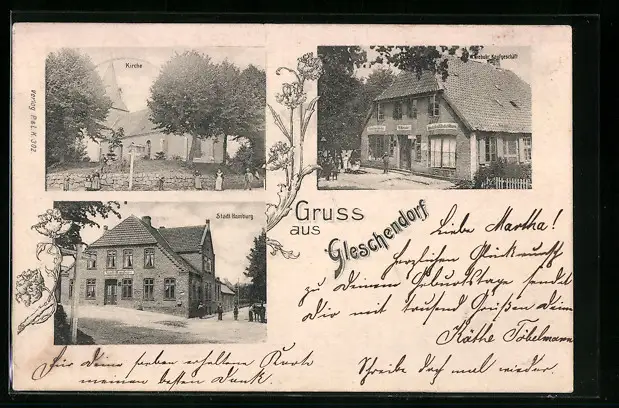 Verlag P. & L. K. 302
Kirche
Stadt Hamburg
Gruss
aus
Gleschendorf
Liebe Martha!
Herzlichen Glückwunsch
zu Deinem Geburtstage sendet
Dir mit tausend Grüßen Deine
Käthe Töbelmann
Für Deine erhaltene Karte
meinen besten Dank.
Schreibe doch mal wieder.